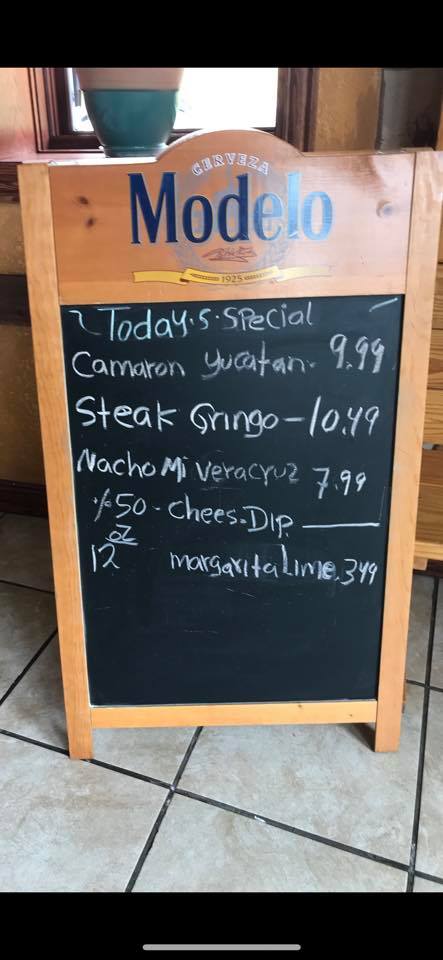 CERVEZA
Modelo
1925
Today.s.Special
Camaron Yucatan. 9.99
Steak Gringo - 10.49
Nacho Mi Veracruz 7.99
%50 - Chees.Dip
12 oz margarita Lime. 3.49